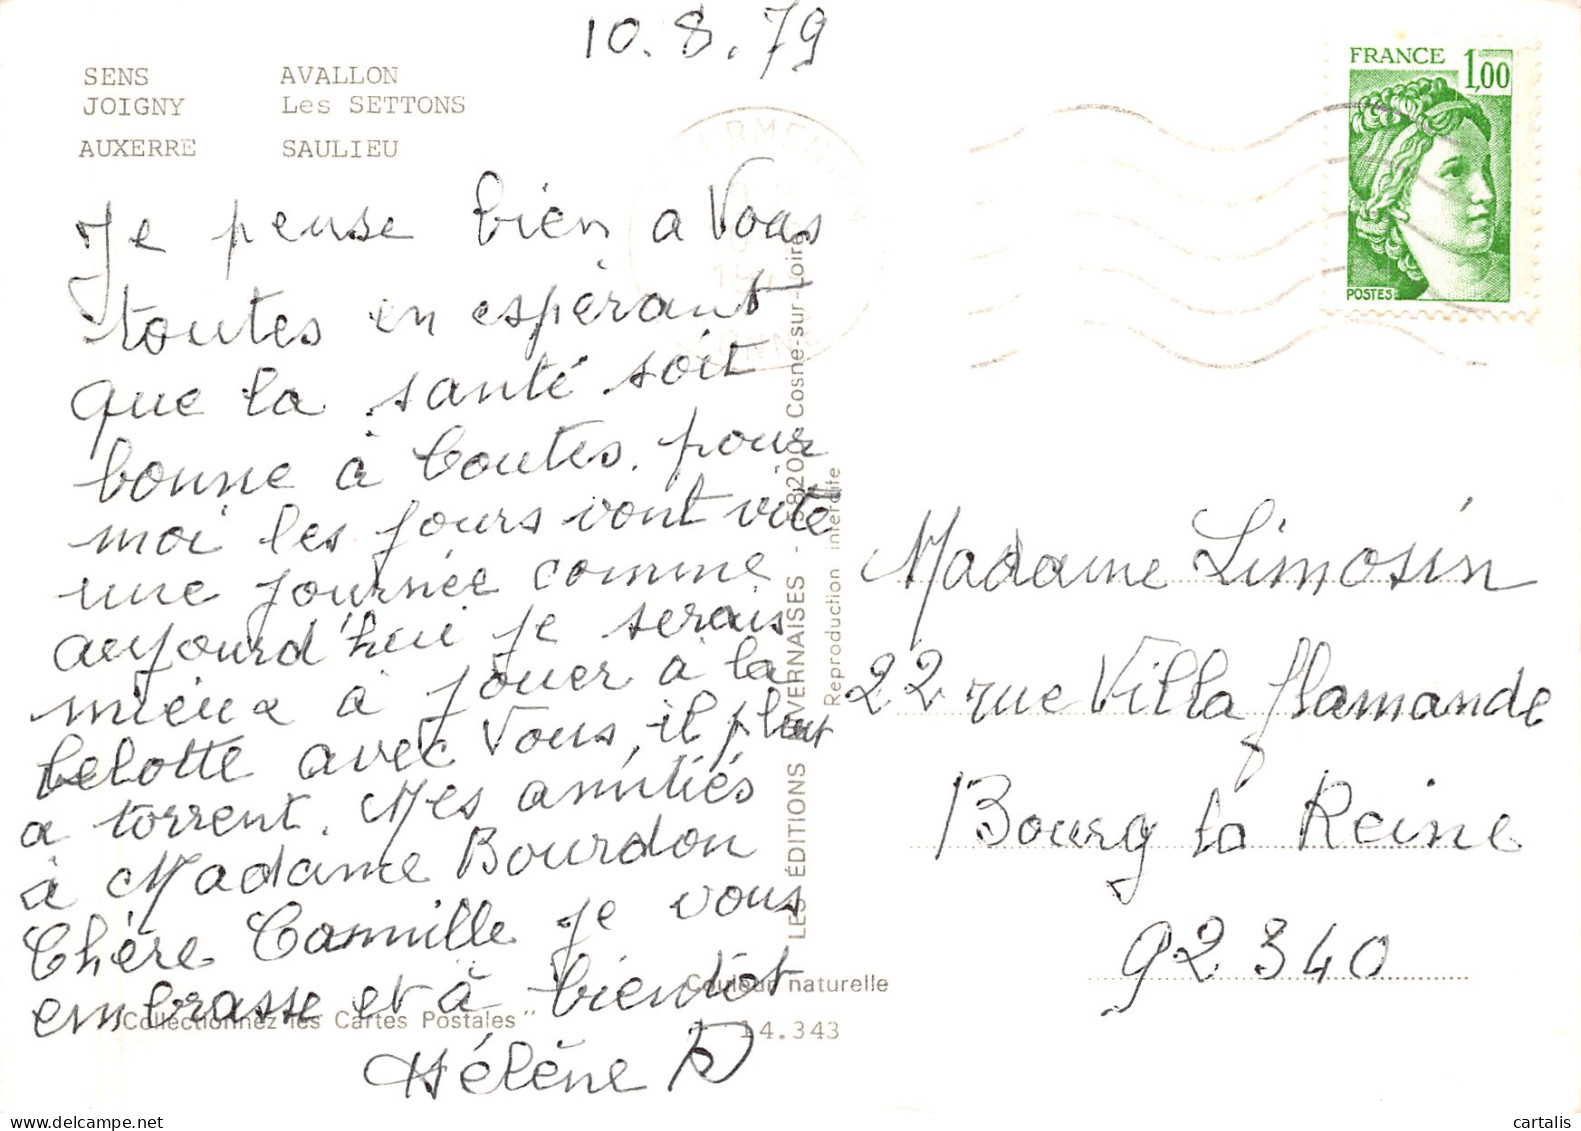 10.8.79
SENS AVALLON
JOIGNY Les SETTONS
AUXERRE SAULIEU
FRANCE 1,00
POSTES
Je pense bien a Vous
toutes en espérant
que la santé soit
bonne à toutes. pour
moi les jours vont vite
une journée comme
aujourd'hui je serais
mieux à jouer à la
belotte avec Vous, il pleut
a torrent. Mes amitiés
à Madame Bourdon
Chère Camille je vous
embrasse et à bientot
Hélène D
LES ÉDITIONS NIVERNAISES - 58200 Cosne-sur-Loire
Reproduction interdite
Madame Limosin
22 rue Villa flamande
Bourg la Reine
92340
Couleur naturelle
"Collectionnez les Cartes Postales"
14.343
cartalis
www.delcampe.net